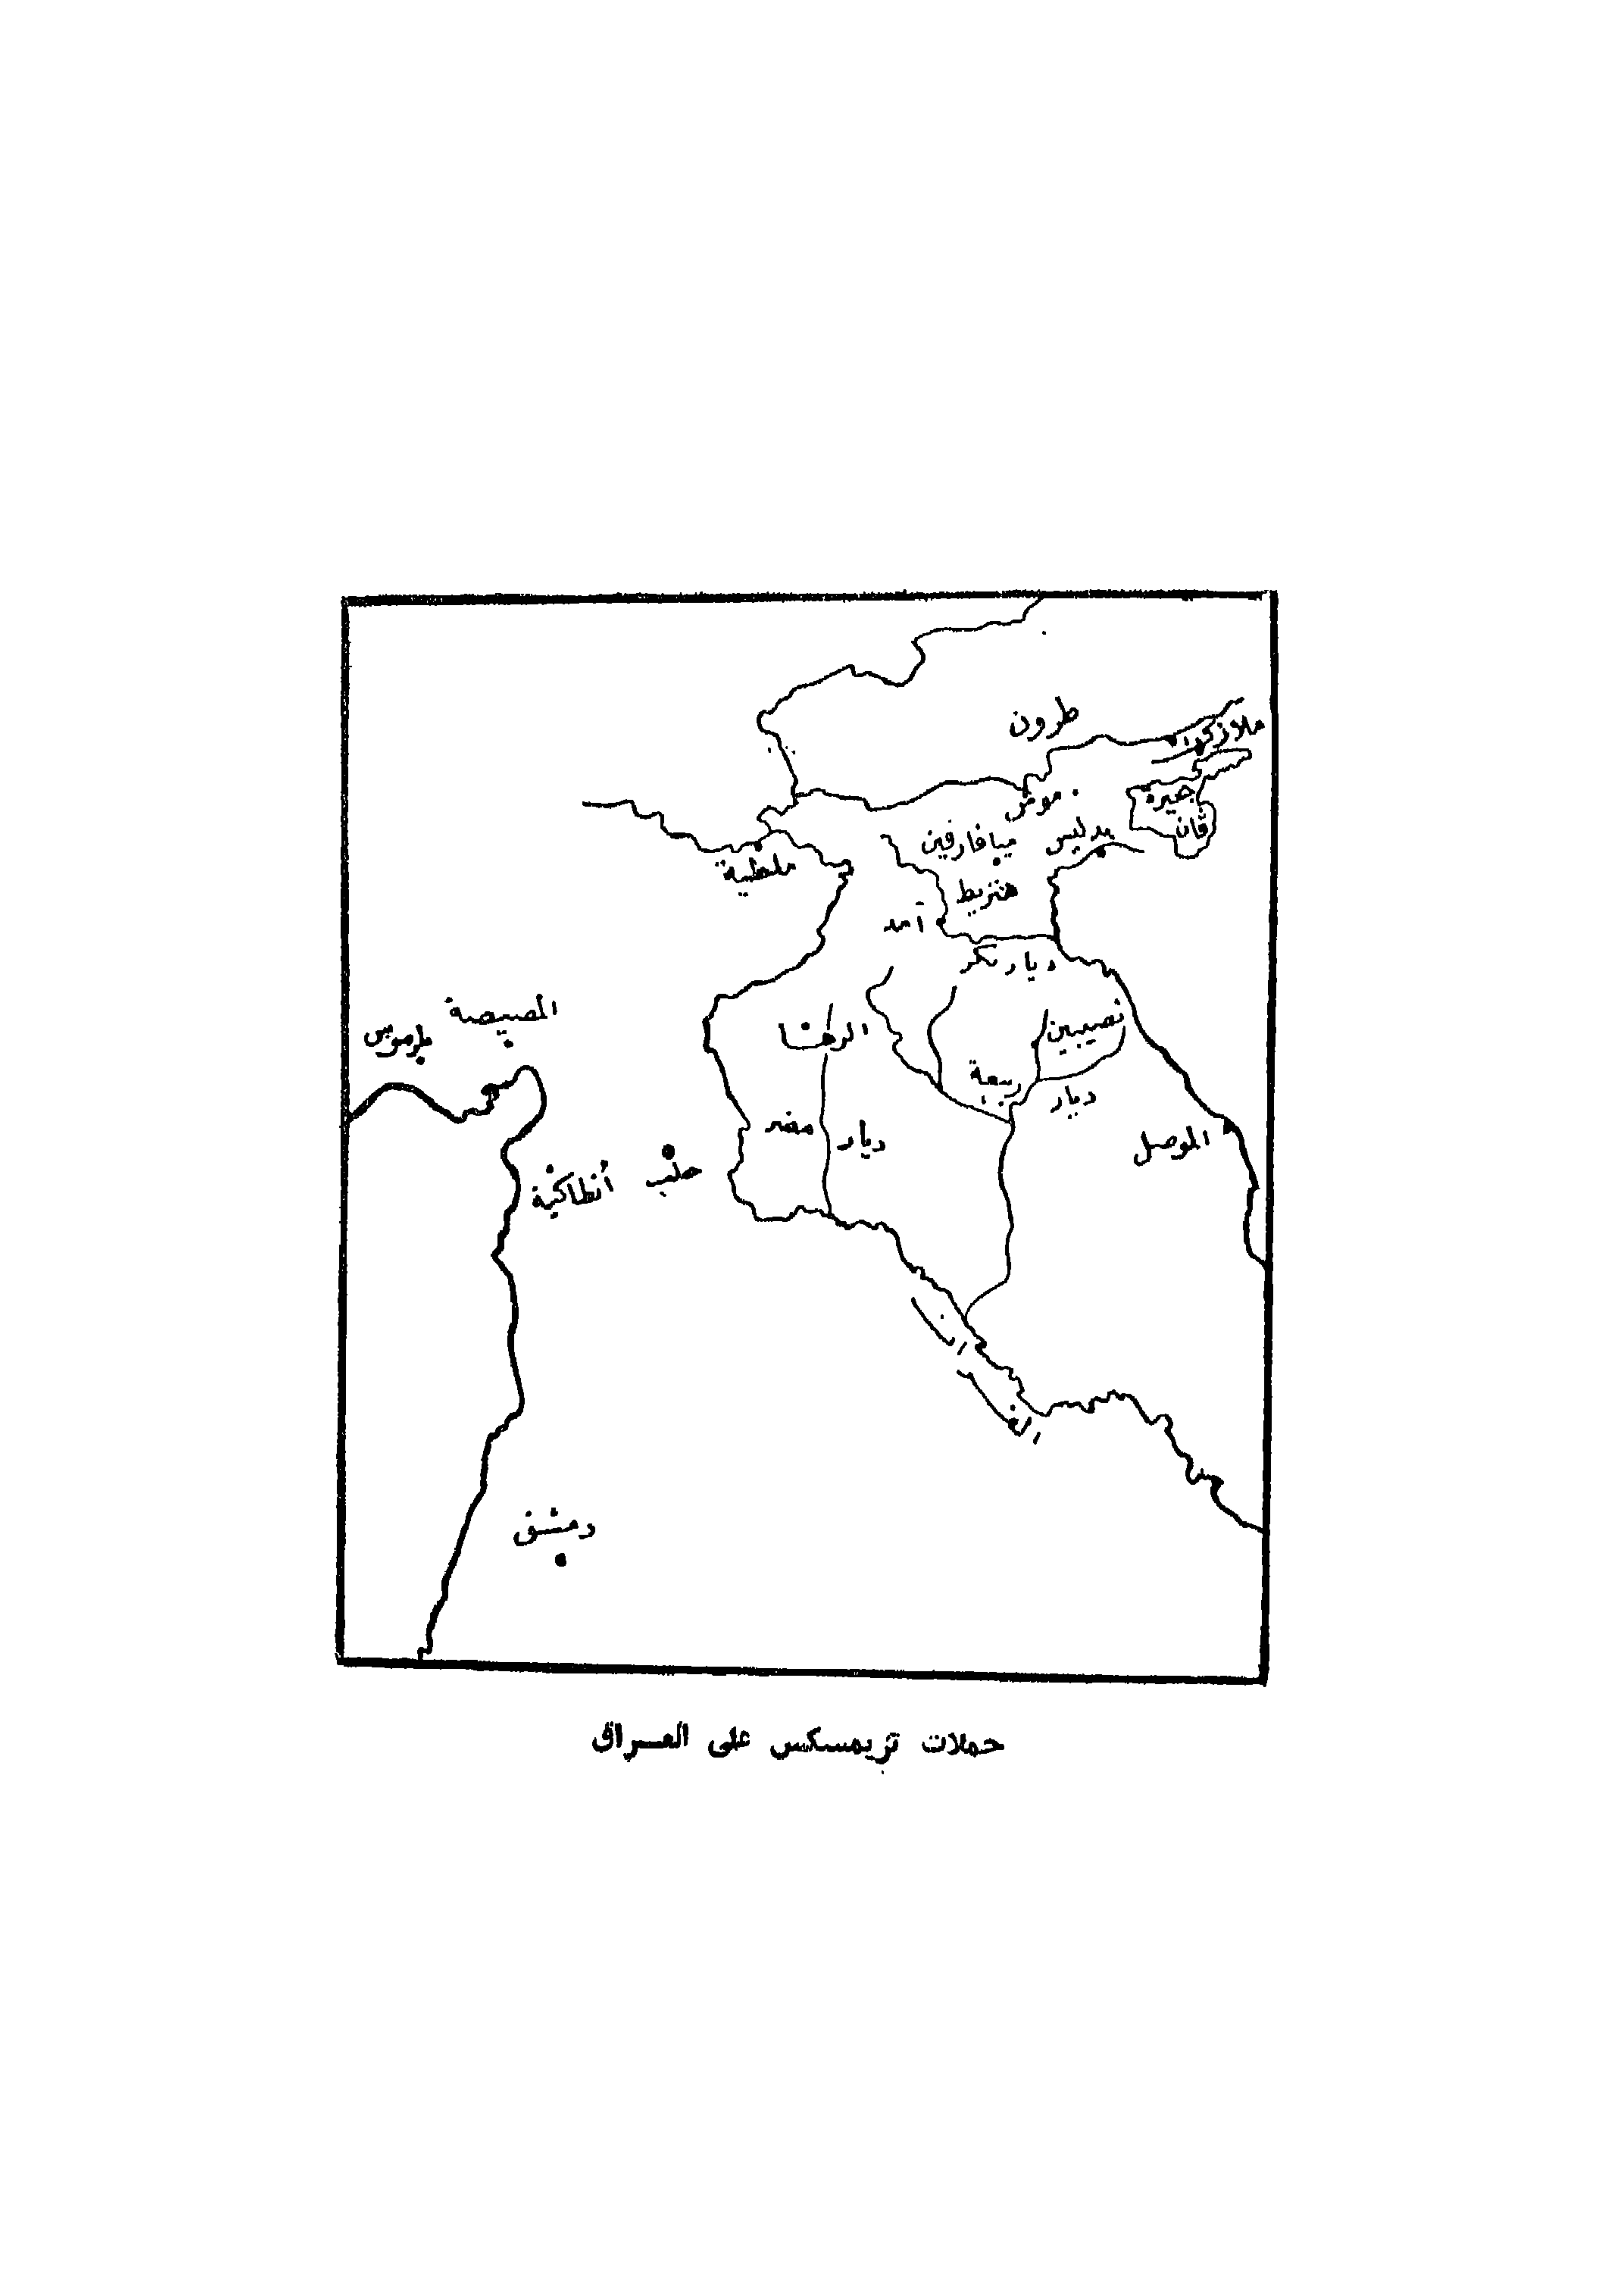 طرون
ملازكرد
موش
بحيرة
ڤان
ميافارقين
بدليس
ملطية
هنزيط
آمد
ديار بكر
المصيصة
طرسوس
الرها
نصيبين
ديار ربيعة
ديار مضر
الموصل
حلب
أنطاكية
دمشق
حملات تزيمسكس على العراق